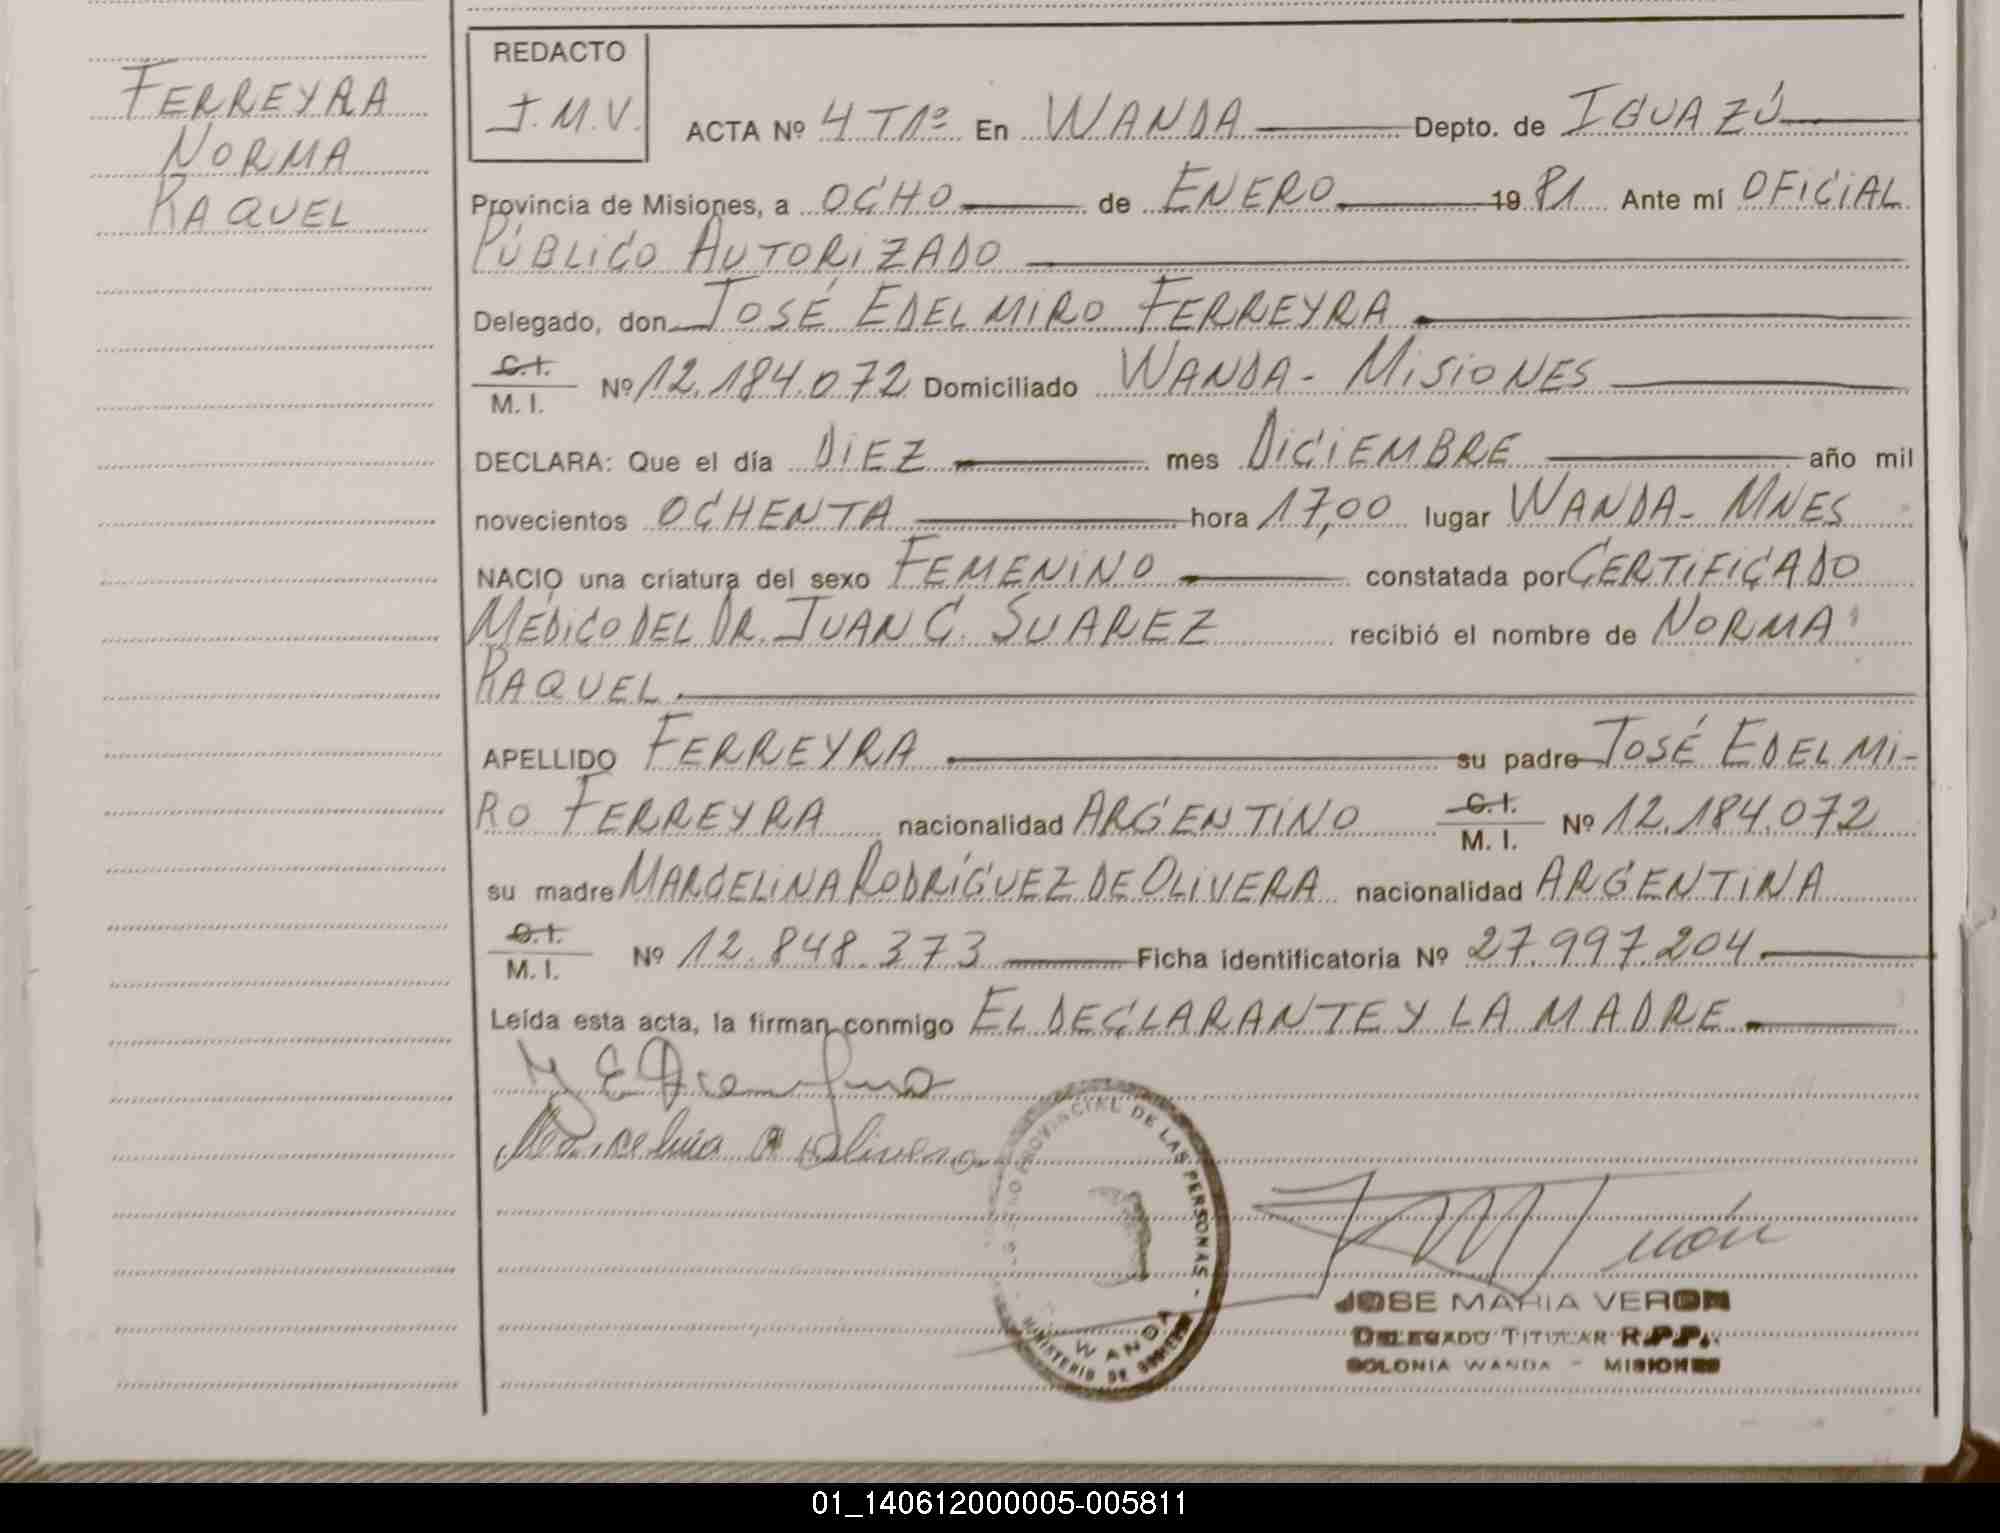 FERREYRA
NORMA
RAQUEL
REDACTO
J.M.V.
ACTA Nº 4 T1º En WANDA Depto. de IGUAZÚ
Provincia de Misiones, a OCHO de ENERO 1981 Ante mí OFICIAL
PÚBLICO AUTORIZADO
Delegado, don JOSÉ EDELMIRO FERREYRA
C.I.
M. I. Nº 12.184.072 Domiciliado WANDA - MISIONES
DECLARA: Que el día DIEZ mes DICIEMBRE año mil
novecientos OCHENTA hora 17,00 lugar WANDA - MNES
NACIO una criatura del sexo FEMENINO constatada por CERTIFICADO
MÉDICO DEL DR. JUAN C. SUAREZ recibió el nombre de NORMA
RAQUEL
APELLIDO FERREYRA su padre JOSÉ EDELMI-
RO FERREYRA nacionalidad ARGENTINO C.I. M. I. Nº 12.184.072
su madre MARCELINA RODRÍGUEZ DE OLIVERA nacionalidad ARGENTINA
C.I.
M. I. Nº 12.848.373 Ficha identificatoria Nº 27.997.204
Leída esta acta, la firman conmigo EL DECLARANTE Y LA MADRE
PROVINCIAL DE LAS PERSONAS
WANDA
MINISTERIO DE GOBIERNO
JOSE MARIA VERON
DELEGADO TITULAR R.P.P.
COLONIA WANDA - MISIONES
01_140612000005-005811